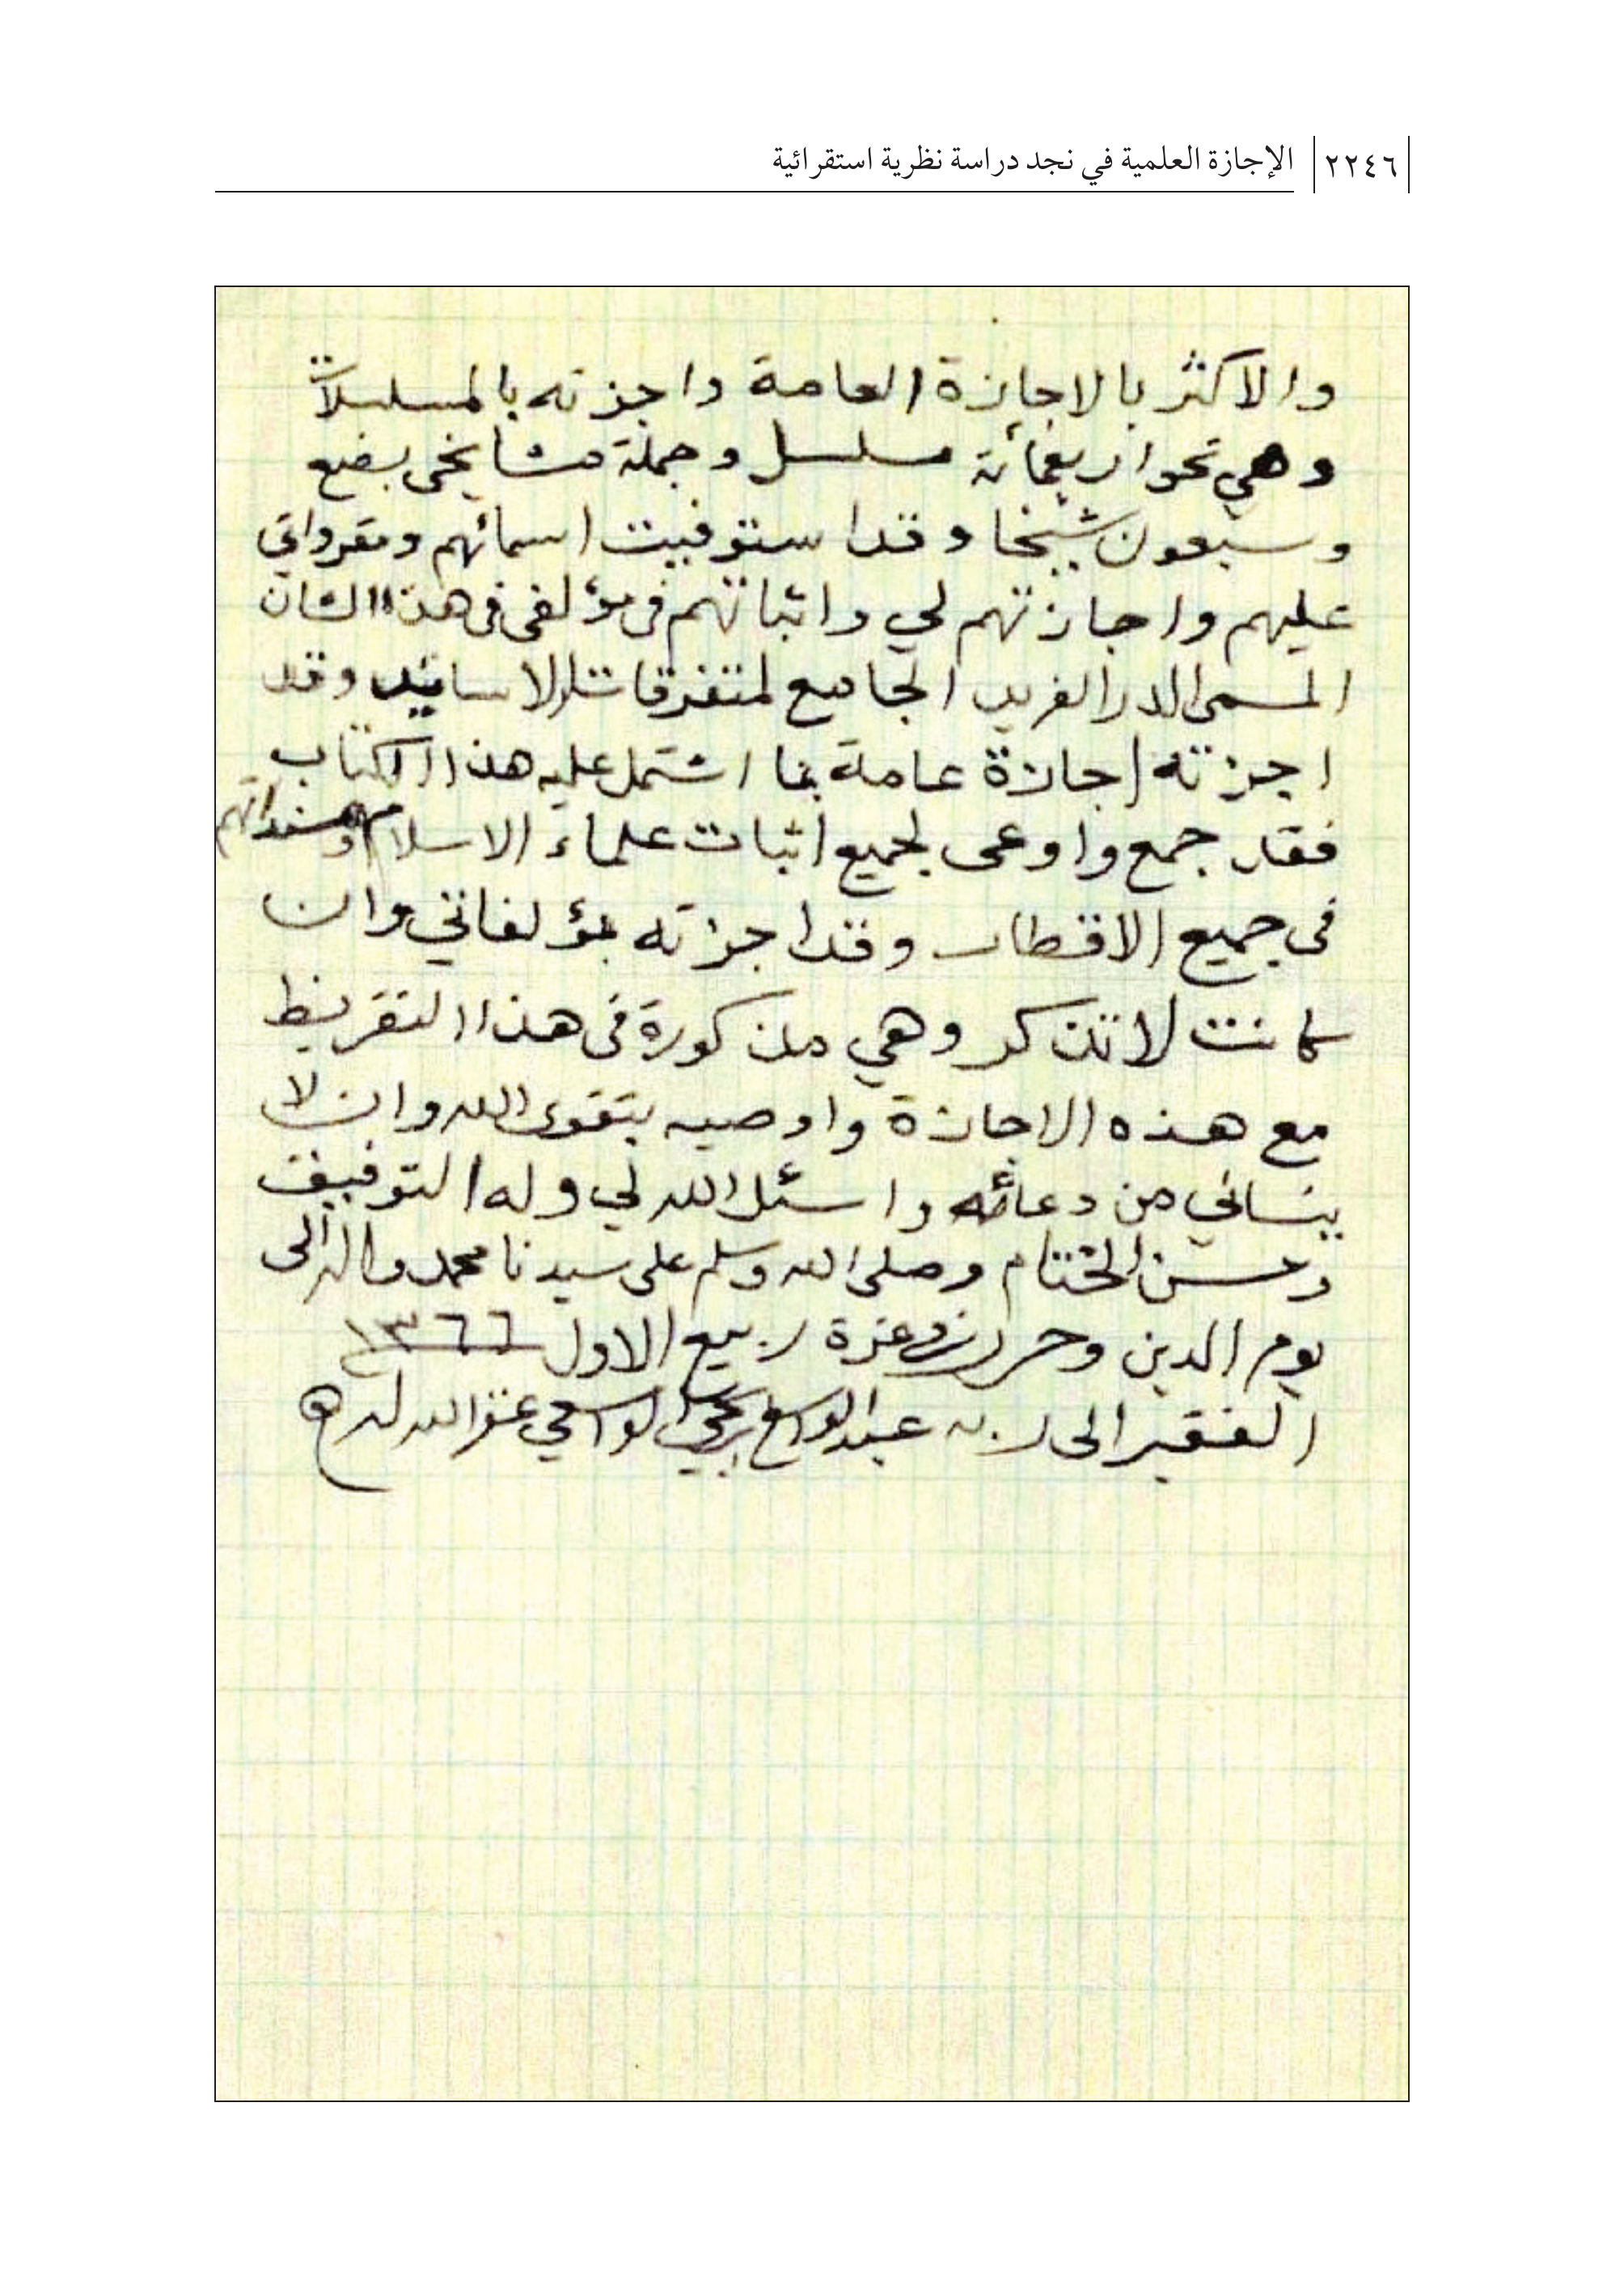 ٢٢٤٦ الإجازة العلمية في نجد دراسة نظرية استقرائية
والاكثر بالاجازة العامة واجزته بالمسلسلات
وهي نحو اربعمائة مسلسل وجملة مشايخى بضع
وسبعون شيخا وقد استوفيت اسمائهم ومقرواتي
عليهم واجازتهم لي واثباتهم فى مؤلفى فى هذا الشان
المسمى الدر الفريد الجامع لمتفرقات الاسانيد وقد
اجزته اجازة عامة بما اشتمل عليه هذا الكتاب
فقد جمع واوعى لجميع اثبات علماء الاسلام ومسنداتهم
فى جميع الاقطار وقد اجزته بمؤلفاتي وان
كانت لا تذكر وهي مذكورة فى هذا التقريظ
مع هذه الاجازة واوصيه بتقوى الله وان لا
ينساني من دعائه واسئل الله لي وله التوفيق
وحسن الختام وصلى الله وسلم على سيدنا محمد واله الى
يوم الدين وحرر فى غرة ربيع الاول ١٣٦٦
الفقير الى ربه عبد الواسع بن يحيى الواسعي غفر الله له